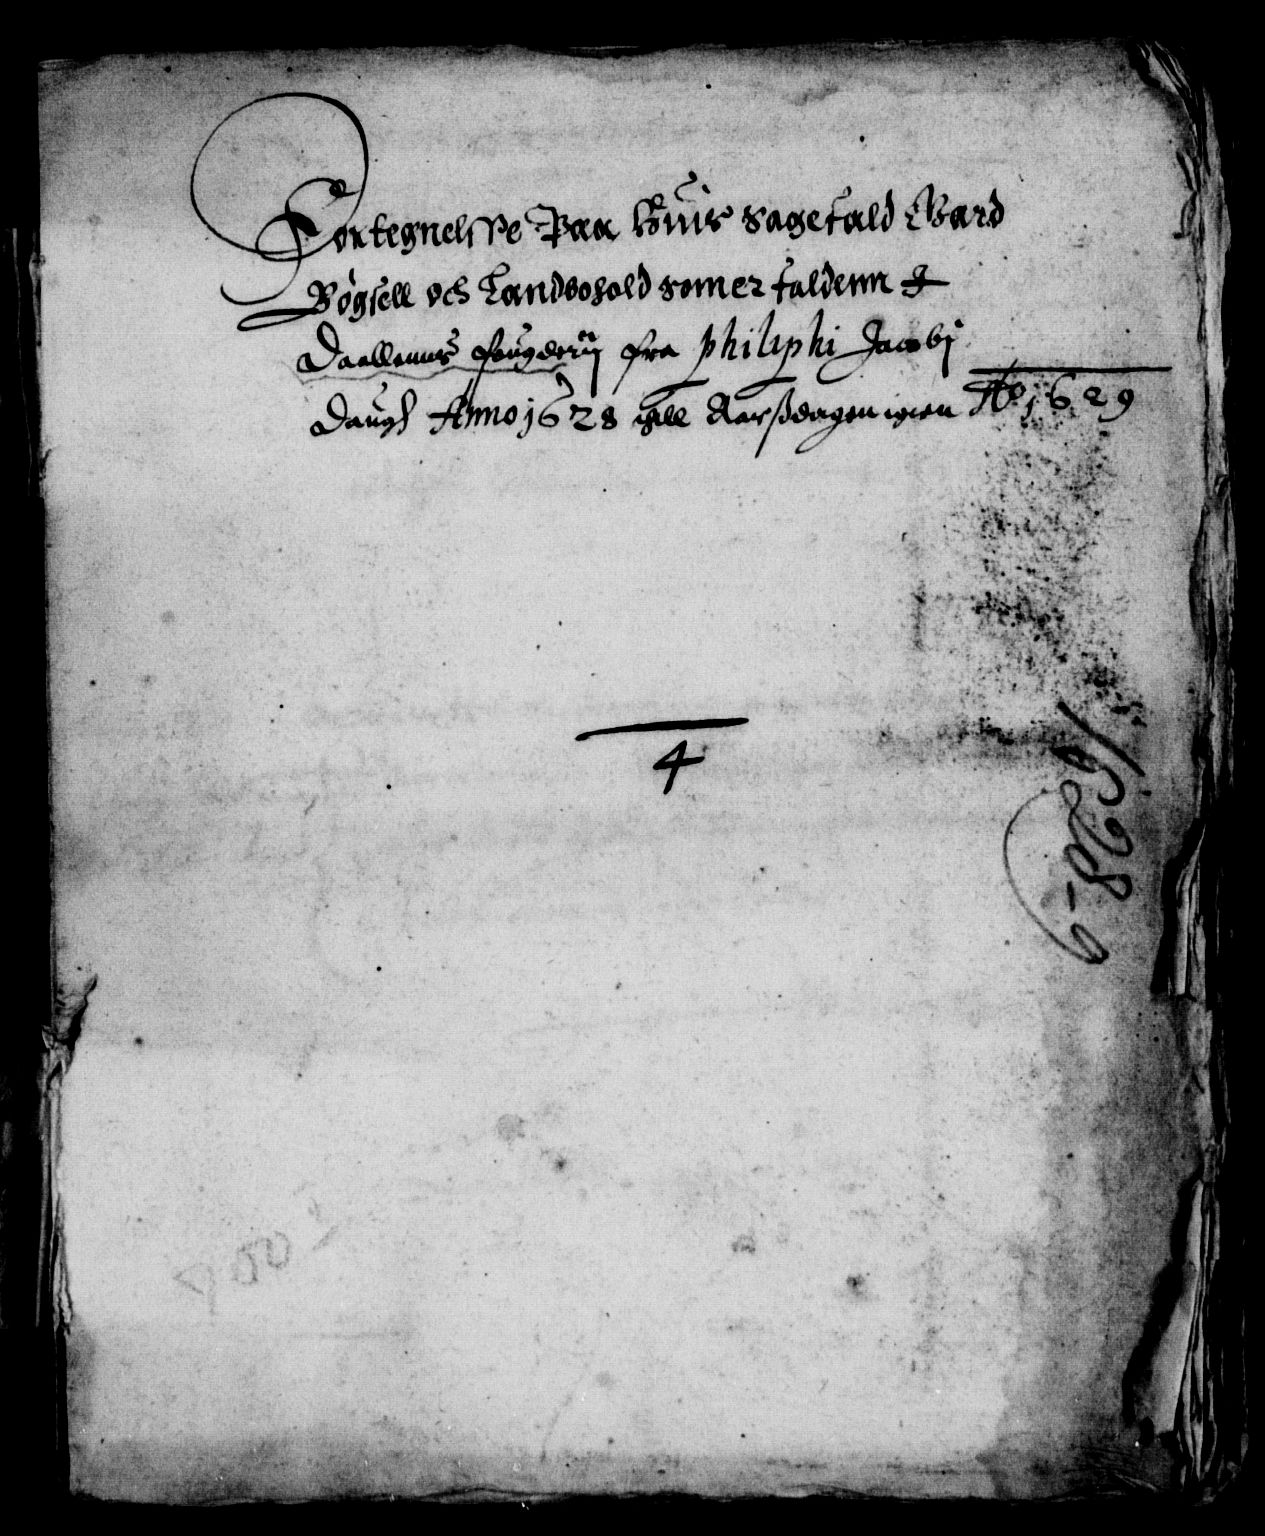 Fortegnelsse Paa huis sagefald Gaard
Bøgsell och Landbohold som er faldenn J
Daallenns fougderij fra philiphi Jacobj
Daugh Anno 1628 till Aarßdagen igien Ao 1629
4
1628-9